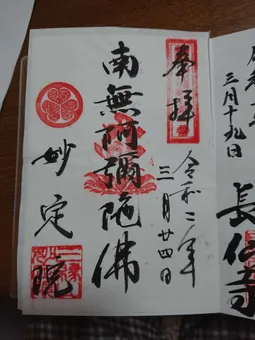 奉拝
令和二年
三月廿四日
南無阿彌陀佛
妙定院
三月十九日
長仁寺